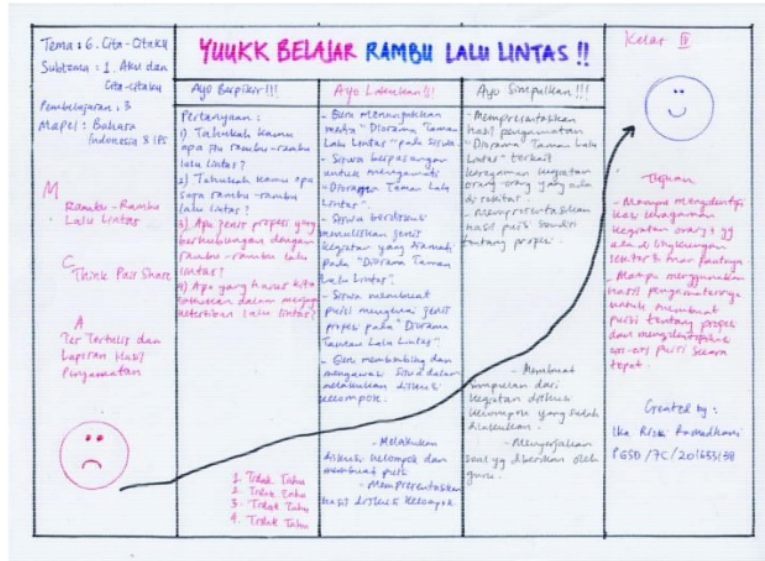 Tema : 6. Cita-Citaku
Subtema : 1. Aku dan
Cita-citaku
Pembelajaran : 3
Mapel : Bahasa
Indonesia & IPS
M
Rambu-Rambu
Lalu Lintas
C
Think Pair Share
A
Tes Tertulis dan
Laporan Hasil
Pengamatan
YUUKK BELAJAR RAMBU LALU LINTAS !!
Ayo Berpikir!!!
Pertanyaan :
1) Tahukah kamu
apa itu rambu-rambu
lalu lintas?
2) Tahukah kamu apa
saja rambu-rambu
lalu lintas?
3) Apa jenis propesi yang
berhubungan dengan
rambu-rambu lalu
lintas?
4) Apa yang harus kita
lakukan dalam menjaga
ketertiban lalu lintas?
1. Tidak Tahu
2. Tidak Tahu
3. Tidak Tahu
4. Tidak Tahu
Ayo Lakukan!!!
- Guru menunjukkan
media "Diorama Taman
Lalu Lintas" pada siswa.
- Siswa berpasangan
untuk mengamati
"Diorama Taman Lalu
Lintas".
- Siswa berdiskusi
menuliskan jenis
kegiatan yang diamati
pada "Diorama Taman
Lalu Lintas".
- Siswa membuat
puisi mengenai jenis
propesi pada "Diorama
Taman Lalu Lintas".
- Guru membimbing dan
mengawasi siswa dalam
melakukan diskusi
kelompok.
- Melakukan
diskusi kelompok dan
membuat puisi
- Mempresentasikan
hasil diskusi kelompok.
Ayo Simpulkan!!!
- Mempresentasikan
hasil pengamatan
"Diorama Taman Lalu
Lintas" terkait
keragaman kegiatan
orang-orang yang ada
di sekitar.
- Mempresentasikan
hasil puisi sendiri
tentang propesi.
- Membuat
simpulan dari
kegiatan diskusi
kelompok yang sudah
dilakukan.
- Mengerjakan
soal yg diberikan oleh
guru.
Kelas IV
Tujuan
- Mampu mengidentifi
kasi keragaman
kegiatan orang2 yg
ada di lingkungan
sekitar &
- Mampu menggunakan
hasil pengamatannya
untuk membuat
puisi tentang propesi
dan mengidentifikasi
ciri-ciri puisi secara
tepat.
Created by :
Ika Rizki Ramadhani
PGSD /7C/201633138